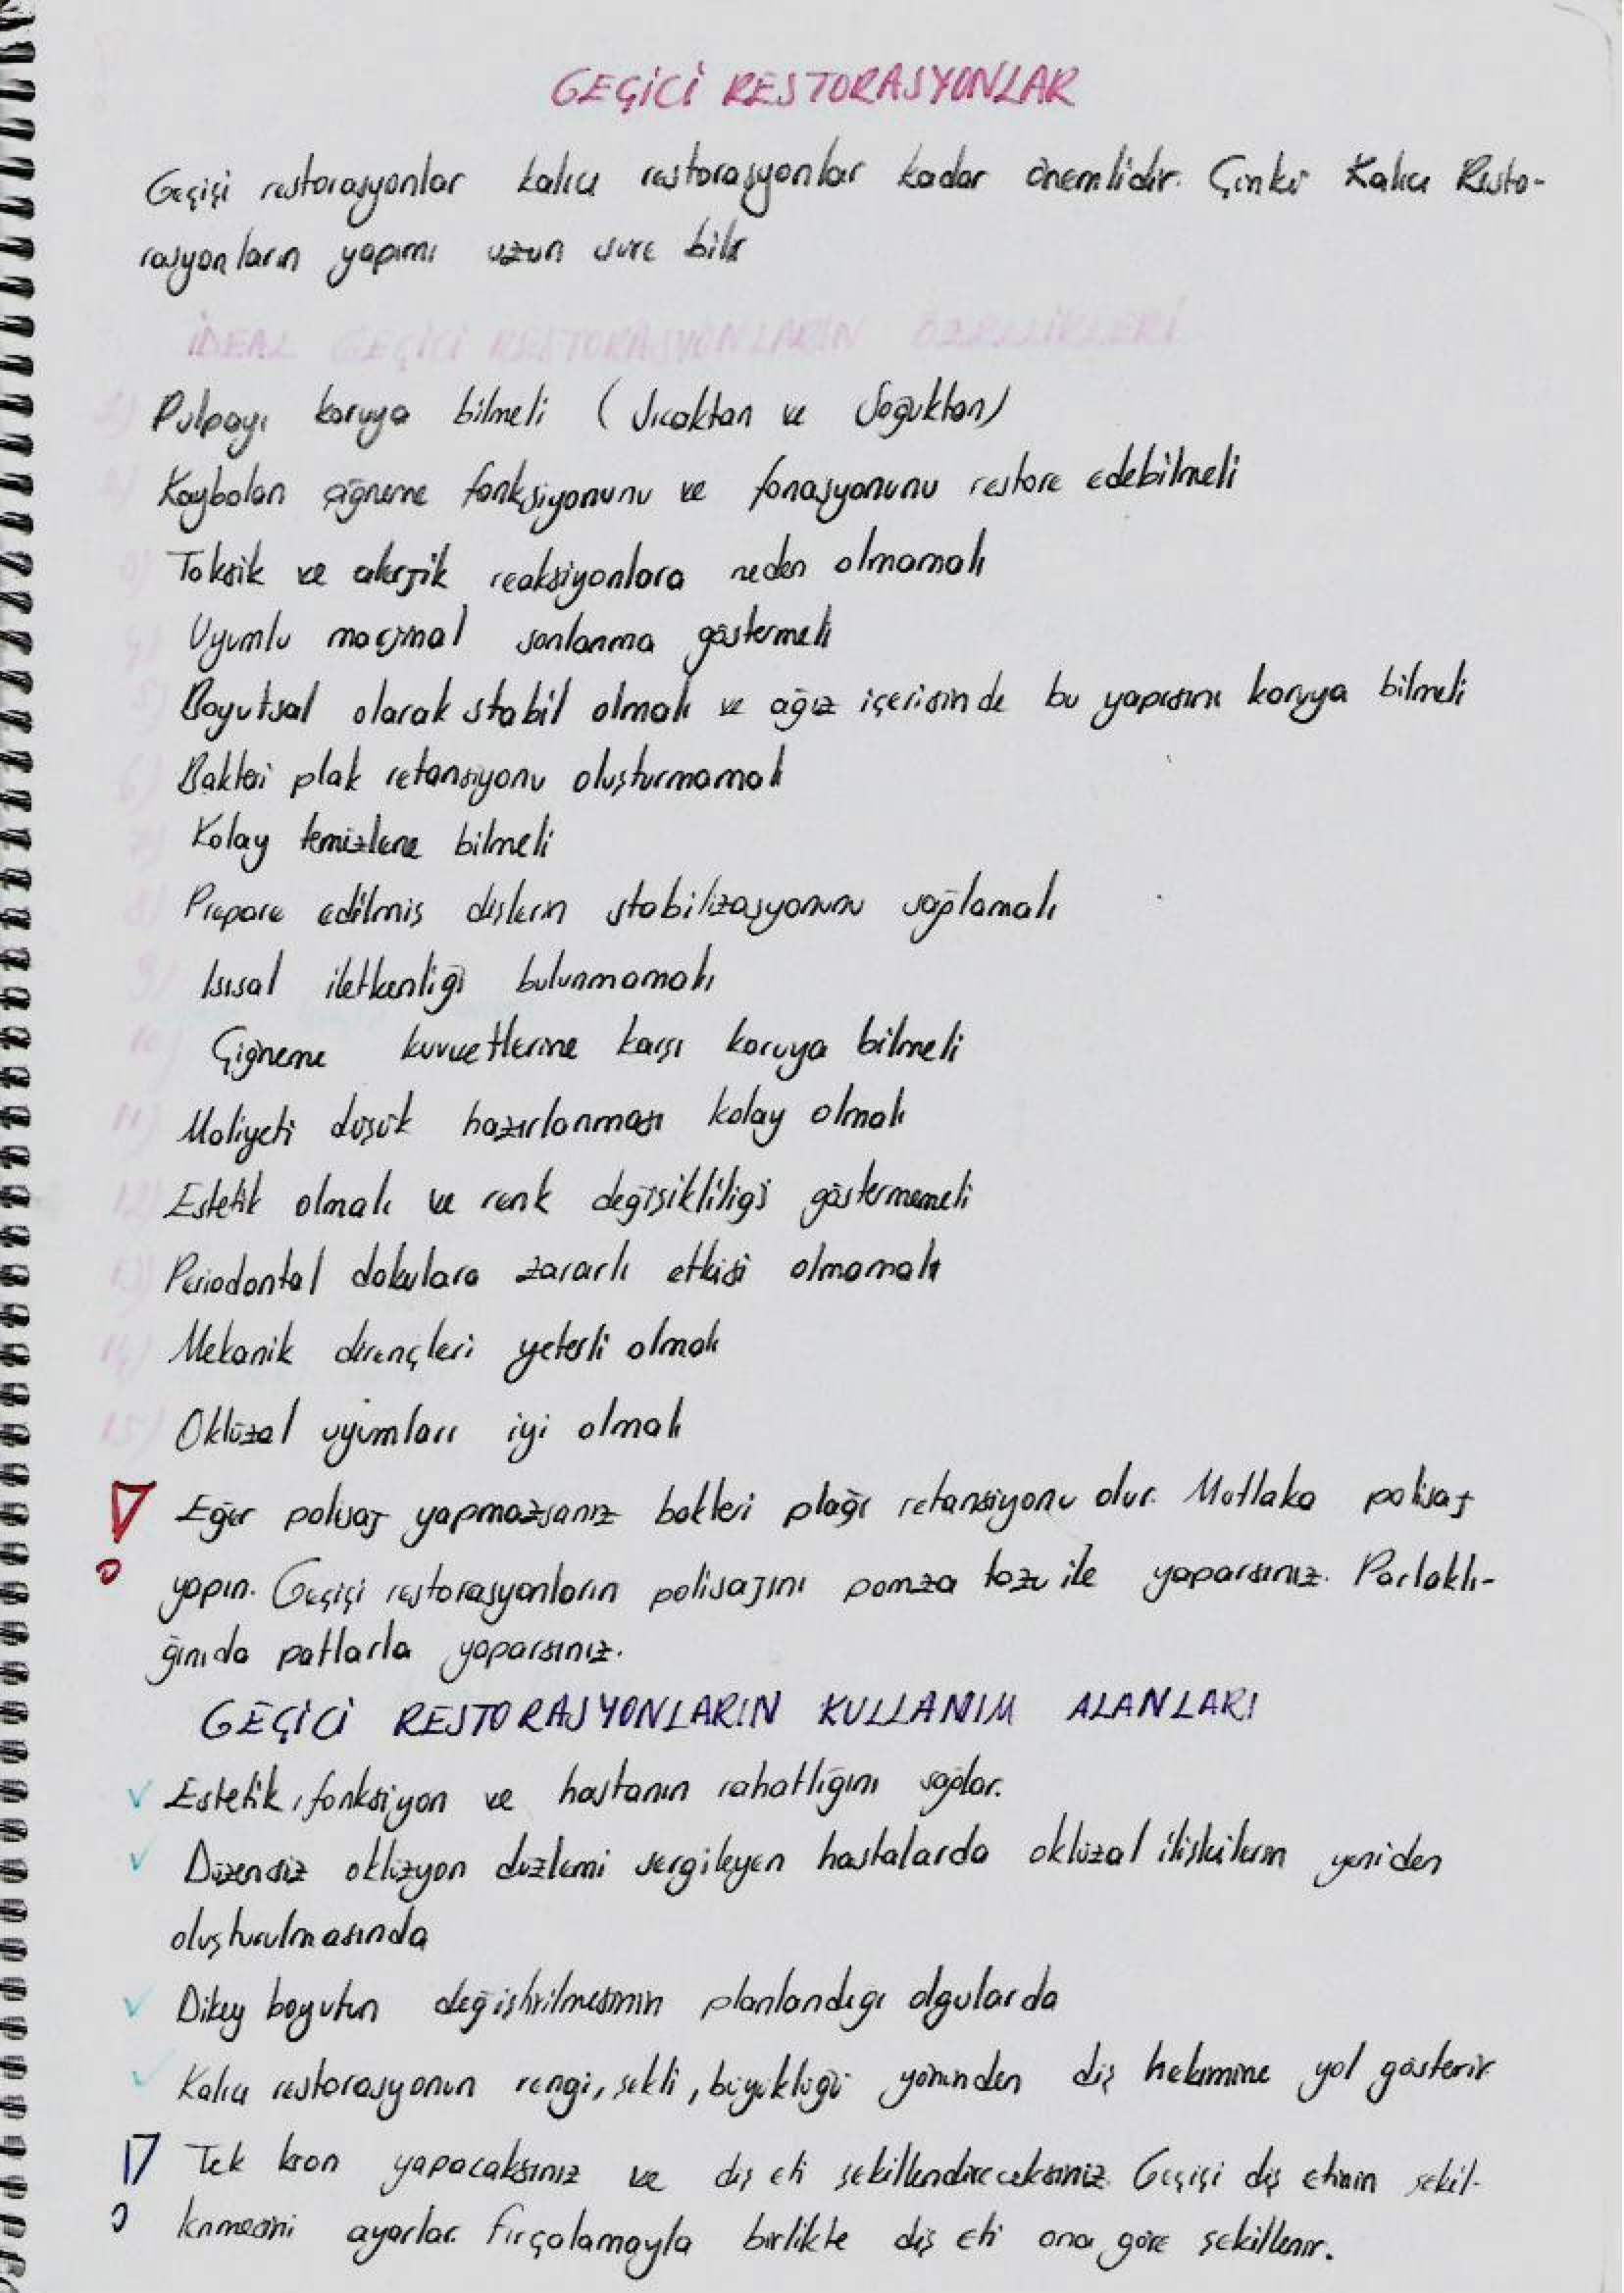 GEÇİCİ RESTORASYONLAR
Geçiçi restorasyonlar kalıcı restorasyonlar kadar önemlidir. Çünkü Kalıcı Resto-
rasyonların yapımı uzun süre bilir
İDEAL GEÇİCİ RESTORASYONLARIN ÖZELLİKLERİ
1) Pulpayı koruya bilmeli (Sıcaktan ve Soğuktan)
2) Kaybolan çiğneme fonksiyonunu ve fonasyonunu restore edebilmeli
3) Toksik ve alerjik reaksiyonlara neden olmamalı
4) Uyumlu marjinal sonlanma göstermeli
5) Boyutsal olarak stabil olmalı ve ağız içerisinde bu yapısını koruya bilmeli
6) Bakteri plak retansiyonu oluşturmamalı
7) Kolay temizlene bilmeli
8) Prepare edilmiş dişlerin stabilizasyonunu sağlamalı
9) Isısal iletkenliği bulunmamalı
10) Çiğneme kuvvetlerine karşı koruya bilmeli
11) Maliyeti düşük hazırlanması kolay olmalı
12) Estetik olmalı ve renk değişikliliği göstermemeli
13) Periodontal dokulara zararlı etkisi olmamalı
14) Mekanik dirençleri yeterli olmalı
15) Oklüzal uyumları iyi olmalı
! Eğer polisaj yapmazsanız bakteri plağı retansiyonu olur. Mutlaka polisaj
yapın. Geçiçi restorasyonların polisajını pomza tozu ile yaparsınız. Parlaklı-
ğınıda patlarla yaparsınız.
GEÇİCİ RESTORASYONLARIN KULLANIM ALANLARI
✓ Estetik, fonksiyon ve hastanın rahatlığını sağlar.
✓ Düzensiz oklüzyon düzlemi sergileyen hastalarda oklüzal ilişkilerin yeniden
oluşturulmasında
✓ Dikey boyutun değiştirilmesinin planlandığı olgularda
✓ Kalıcı restorasyonun rengi, şekli, büyüklüğü yönünden diş hekimine yol gösterir
! Tek kron yapacaksınız ve diş eti şekillendireceksiniz. Geçiçi diş etinin şekil-
lenmesini ayarlar. Fırçalamayla birlikte diş eti ona göre şekillenir.